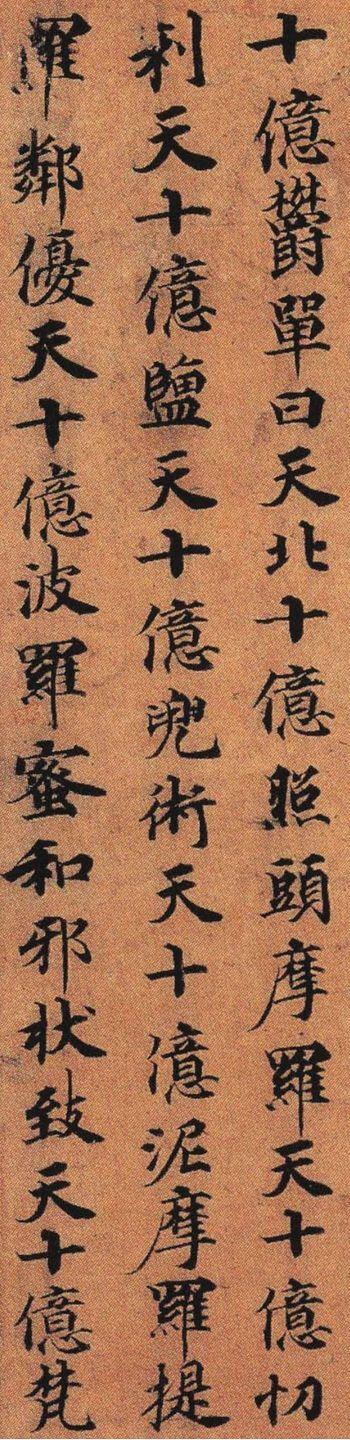 十億欝單曰天北十億照頭摩羅天十億忉
利天十億鹽天十億兜術天十億泥摩羅提
羅鄰優天十億波羅蜜和邪状致天十億梵